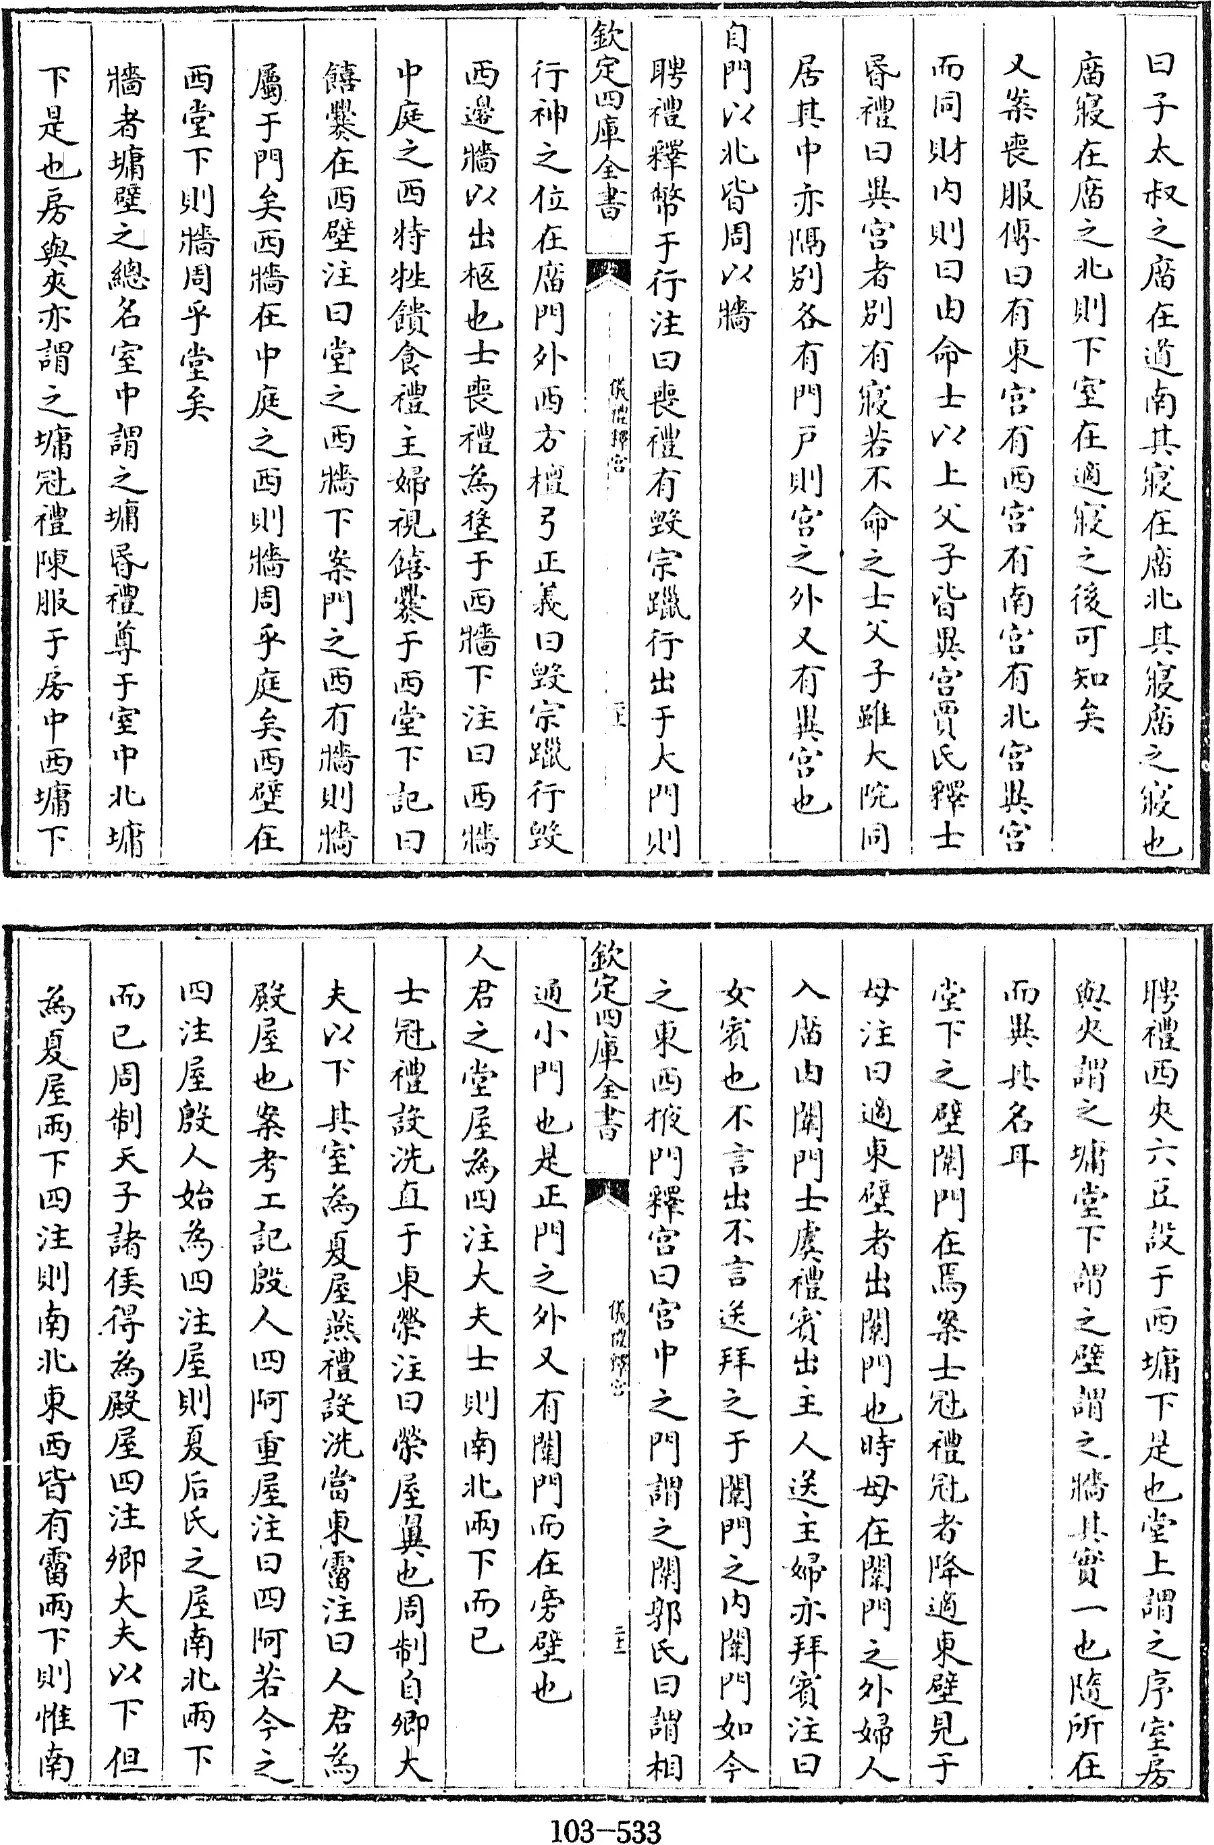 曰子太叔之廟在道南其寢在廟北其寢廟之寢也
廟寢在廟之北則下室在適寢之後可知矣
又案喪服傳曰有東宮有西宮有南宮有北宮異宮
而同財内則曰由命士以上父子皆異宮賈氏釋士
昏禮曰異宮者別有寢若不命之士父子雖大院同
居其中亦隔別各有門戸則宮之外又有異宮也
自門以北皆周以牆
聘禮釋幣于行注曰喪禮有毀宗躐行出于大門則
欽定四庫全書
儀禮釋宮
二十
行神之位在廟門外西方檀弓正義曰毀宗躐行毀
西邊牆以出柩也士喪禮為垼于西牆下注曰西牆
中庭之西特牲饋食禮主婦視饎爨于西堂下記曰
饎爨在西壁注曰堂之西牆下案門之西有牆則牆
屬于門矣西牆在中庭之西則牆周乎庭矣西壁在
西堂下則牆周乎堂矣
牆者墉壁之總名室中謂之墉昏禮尊于室中北墉
下是也房與夾亦謂之墉冠禮陳服于房中西墉下
聘禮西夾六豆設于西墉下是也堂上謂之序室房
與夾謂之墉堂下謂之壁謂之牆其實一也隨所在
而異其名耳
堂下之壁闈門在焉案士冠禮冠者降適東壁見于
母注曰適東壁者出闈門也時母在闈門之外婦人
入廟由闈門士虞禮賓出主人送主婦亦拜賓注曰
女賓也不言出不言送拜之于闈門之内闈門如今
之東西掖門釋宮曰宮中之門謂之闈郭氏曰謂相
欽定四庫全書
儀禮釋宮
二十一
通小門也是正門之外又有闈門而在旁壁也
人君之堂屋為四注大夫士則南北兩下而已
士冠禮設洗直于東榮注曰榮屋翼也周制自卿大
夫以下其室為夏屋燕禮設洗當東霤注曰人君為
殿屋也案考工記殷人四阿重屋注曰四阿若今之
四注屋殷人始為四注屋則夏后氏之屋南北兩下
而已周制天子諸侯得為殿屋四注卿大夫以下但
為夏屋兩下四注則南北東西皆有霤兩下則惟南
103-533